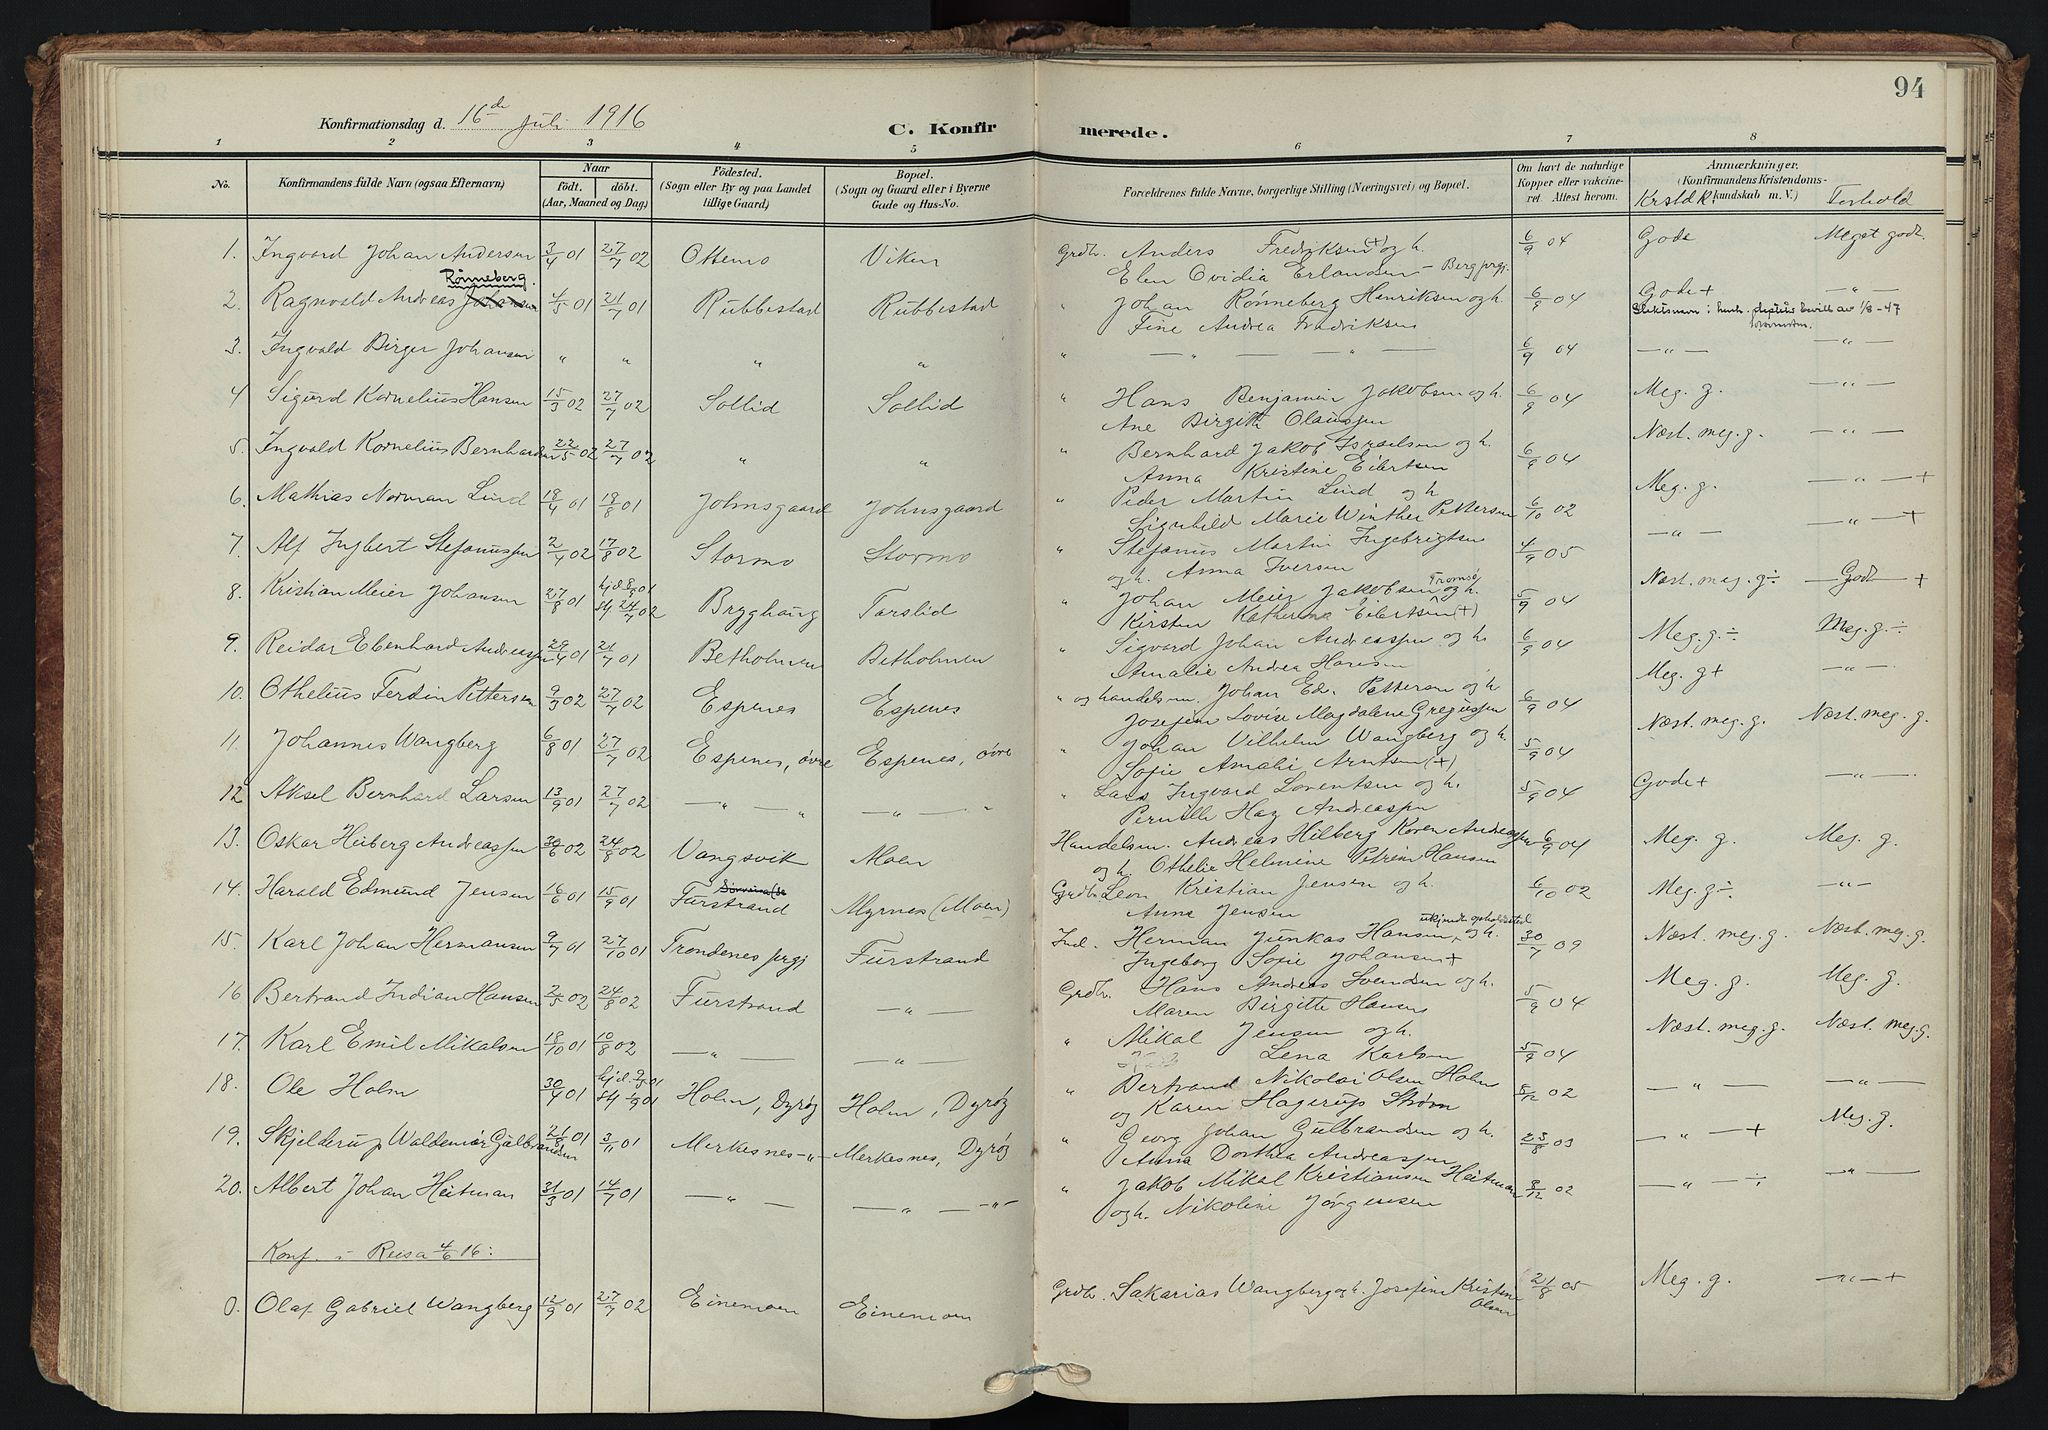 94
Konfirmationsdag d. 16de Juli 1916
C. Konfirmerede.
1 2 3 4 5 6 7 8
No. Konfirmandens fulde Navn (ogsaa Efternavn) Naar født. døbt. (Aar, Maaned og Dag) Fødested. (Sogn eller By og paa Landet tillige Gaard) Bopæl. (Sogn og Gaard eller i Byerne Gade og Hus-No. Forældrenes fulde Navne, borgerlige Stilling (Næringsvei) og Bopæl. Om havt de naturlige Kopper eller vakcineret. Attest herom. Anmærkninger. (Konfirmandens Kristendomskundskab m. V.) Krstd.k. Forhold
1. Ingvard Johan Andersen 3/4 01 27/7 02 Ottemo Viken Grdbr. Anders Fredriksen(+) og h. 6/9 04 Gode Meget godt.
Elen Ovidia Erlandsen - Berg prgj.
Rønneberg.
2. Ragnvald Andreas Johansen 4/5 01 21/7 01 Rubbestad Rubbestad " Johan Rønneberg Henriksen og h. 6/9 04 Gode + — " —
Fine Andrea Fredriksen Slektsnavn i henh. bevill av 1/8 - 47
3. Ingvald Birger Johansen " " " " " — " — " — 6/9 04 — " — — " —
4 Sigurd Kornelius Hansen 15/3 02 27/7 02 Sollid Sollid " Hans Benjamin Jakobsen og h. 6/9 04 Meg. g. — " —
Ane Birgith Olaussen
5. Ingvald Kornelius Bernhardsen 22/5 02 27/7 02 " " " Bernhard Jakob Israelsen og h. 6/9 04 Næst. meg. g. — " —
Anna Kristine Eilertsen
6. Mathias Norman Lind 18/4 01 18/8 01 Johnsgaard Johnsgaard " Peder Martin Lind og h 6/10 02 Meg. g. — " — +
Signhild Marie Winther Pettersen
7. Alf Ingbert Stefanussen 2/4 02 17/8 02 Stormo Stormo " Stefanus Martin Ingebrigtsen 4/9 05 — " — — " — +
og h. Anna Iversen
8. Kristian Meier Johansen 27/8 01 hjd. 8/9 01 st4 24/7 02 Brygghaug Tarslid " Johan Meier Jakobsen Tromsø og h. 5/9 04 Næst. meg. g ÷ — Godt — +
Kirsten Katherina Eilertsen (+)
9. Reidar Ebenhard Andreassen 29/4 01 21/7 01 Betholmen Betholmen " Sigvard Johan Andreassen og h. 6/9 04 Meg. g. ÷ Meg. g ÷
Amalie Andrea Hansen
10. Othelius Ferdin Pettersen 9/3 02 27/7 02 Espenes Espenes " og handelsm. Johan Ed. Pettersen og h 6/9 04 Meg. g + — " —
Josefine Lovise Magdalene Gregussen
11. Johannes Wangberg 6/8 01 27/7 02 Espenes, øvre Espenes, øvre " Johan Vilhelm Wangberg og h. 5/9 04 Næst. meg. g. Næst. meg. g.
Sofie Amalie Arntsen (+)
12 Aksel Bernhard Larsen 13/9 01 27/7 02 — " — " — " — " " Lars Ingvard Lorentsen og h. 5/9 04 Gode + — " —
Pernille Hay Andreassen
13. Oskar Heiberg Andreassen 30/6 02 24/8 02 Vangsvik Moen Handelsm. Andreas Hilberg Koren Andreassen 6/9 04 Meg. g. Meg. g.
og h. Othelie Helmine Petrine Hansen
14. Harald Edmund Jensen 16/6 01 15/9 01 Furstrand Myrnes (Moen) Grdbr. Leon Kristian Jensen og h. 6/10 02 Meg. g ÷ — " —
Anna Jensen
15. Karl Johan Hermansen 9/7 01 27/10 01 Trondenes prgj Furstrand Ind. Herman Junkas Hansen, ukjendt opholdssted og h. 30/7 09 Næst. meg. g. Næst. meg. g.
Ingeborg Sofie Johansen +
16 Bertrand Indian Hansen 2/5 02 24/8 02 Furstrand — " — Grdbr. Hans Andreas Svendsen og h. 5/9 04 Meg. g. Meg. g.
Maren Birgitte Hansen
17. Karl Emil Mikalsen 18/10 01 10/8 02 — " — — " — " Mikal Jensen og h. 5/9 04 Næst. meg. g. Næst. meg. g.
Lena Karlsen
18. Ole Holm 30/4 01 hjd. 9/5 01 st4 1/9 01 Holm, Dyrøy Holm, Dyrøy " Bertrand Nikolai Olsen Holm 8/12 02 — " — — " —
og Karen Hagerup Strøm
19. Skjelderup Waldemar Gulbrandsen 21/8 01 3/11 01 Merkesnes - " - Merkesnes, Dyrøy " Georg Johan Gulbrandsen og h. 23/8 03 — " — + Meg. g.
Anna Dorthea Andreassen
20. Albert Johan Heitman 31/3 01 14/7 01 — " — — " — - " - " Jakob Mikal Kristiansen Heitman 8/12 02 — " — ÷ — " —
og h. Nikoline Jørgensen
Konf. i Reisa 4/6 16:
0. Olaf Gabriel Wangberg 12/9 01 27/7 02 Einemoen Einemoen Grdbr. Sakarias Wangberg og h. Josefine Kristine Olsen 21/8 05 Meg. g. — " — +